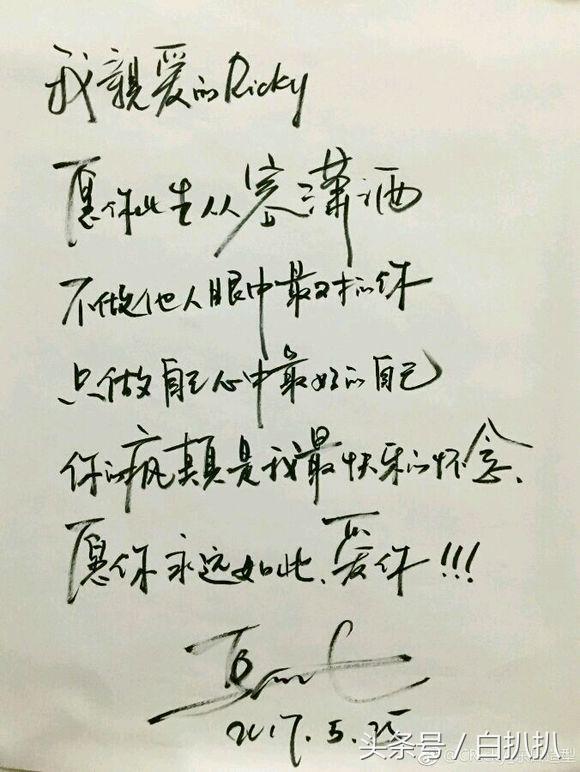 我親爱的Ricky
愿你此生从容潇洒
不做他人眼中最对的你
只做自己心中最好的自己
你的疯颠是我最快乐的怀念、
愿你永远如此、爱你!!!
2017.5.25
头条号/白扒扒